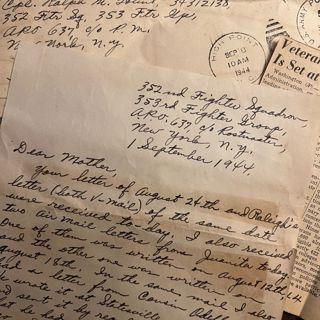 Cpl. Ralph M.
352 Ftr Sq. 353 Ftr Gp,
A.P.O. 637, c/o P.M.
New York, N.Y.
HIGH POINT
SEP
10 AM
1944
ARMY
Veteran
Is Set at
Washington
Administration,
352nd Fighter Squadron,
353rd Fighter Group,
A.P.O. 637, c/o Postmaster,
New York, N.Y.
1 September 1944.
Dear Mother
Your letter of August 24th and Raleigh's
letter (both V-mail) of the same date
were received to-day. I also received
two air mail letters from Juanita today.
One of them was written on August 12th
and the other one was written
August 18th. In the same mail I also
had a letter from Cousin Odell
wrote it at Statesville
and sent it by reg
he had